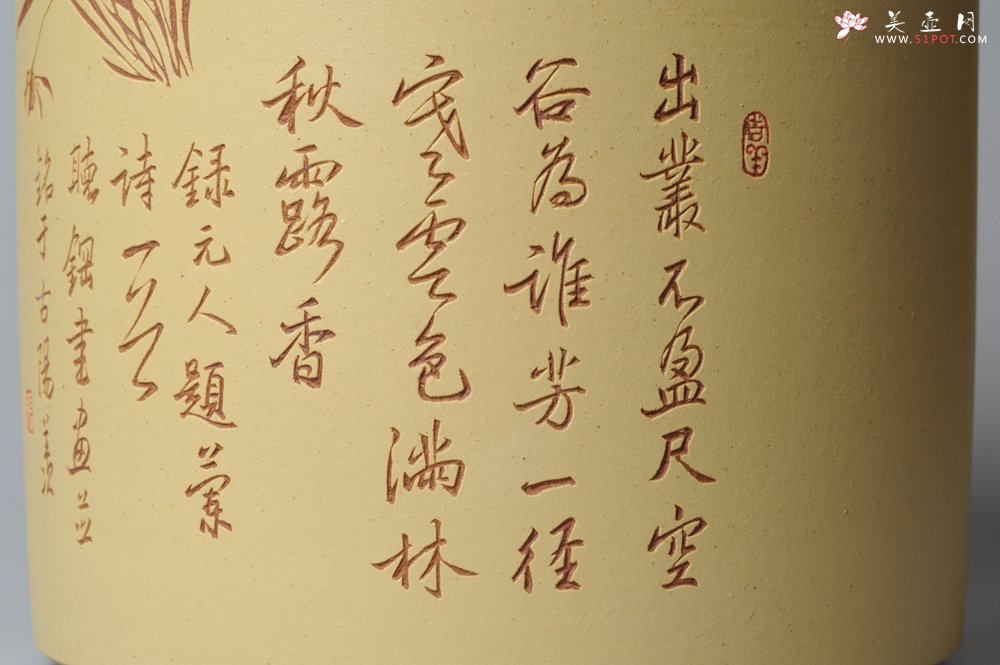 美壶网
WWW.51POT.COM
出叢不盈尺空
谷為誰芳一径
寒雲色滿林
秋露香
錄元人題蘭
詩一首
聽鋼書畫並
銘于古陽羨